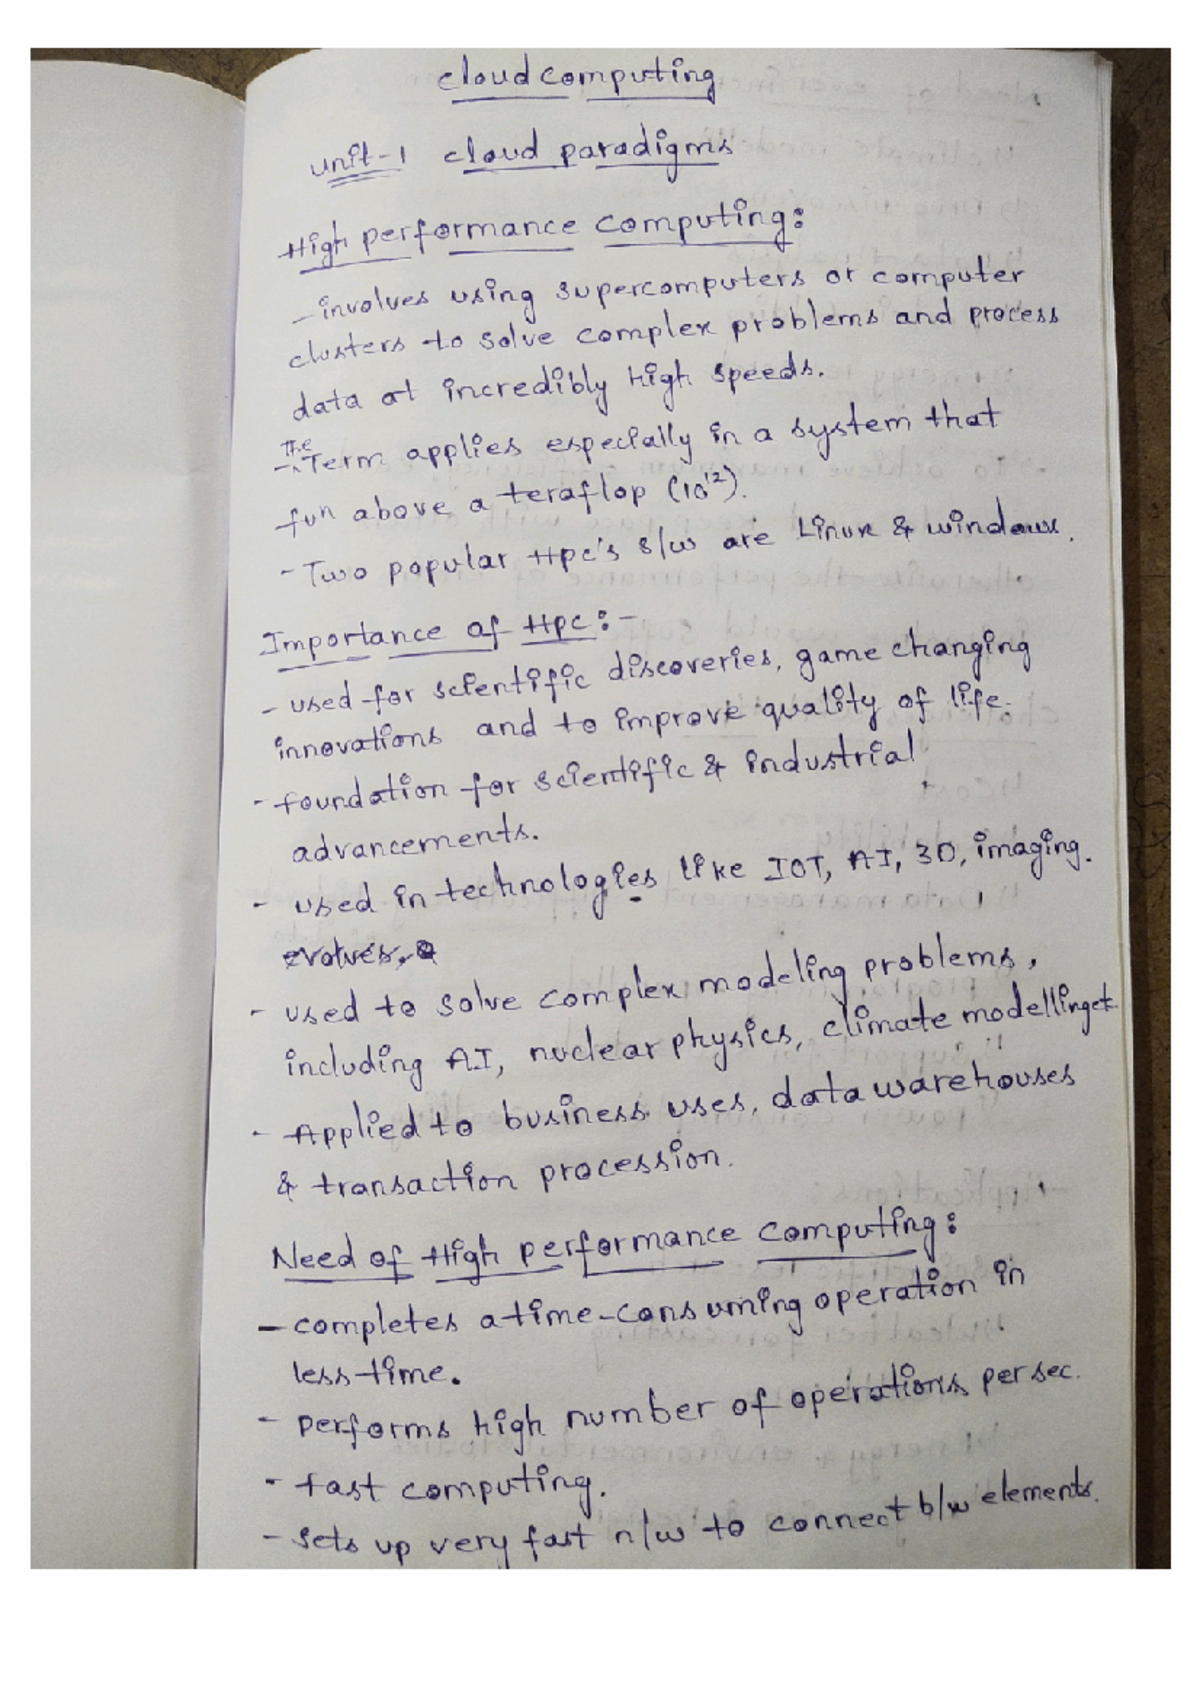 cloud computing
unit-1 cloud paradigms
High performance computing:
- involves using supercomputers or computer
clusters to solve complex problems and process
data at incredibly high speeds.
- The Term applies especially in a system that
fun above a teraflop (10^12).
- Two popular Hpc's s/w are Linux & windows.
Importance of Hpc:-
- used for scientific discoveries, game changing
innovations and to improve quality of life.
- foundation for scientific & industrial
advancements.
- used in technologies like IOT, AI, 3D, imaging.
evolves,
- used to solve complex modeling problems,
including AI, nuclear physics, climate modelling etc.
- Applied to business uses, data warehouses
& transaction procession.
Need of High performance computing:
- completes a time-consuming operation in
less time.
- performs high number of operations per sec.
- fast computing.
- sets up very fast n/w to connect b/w elements.